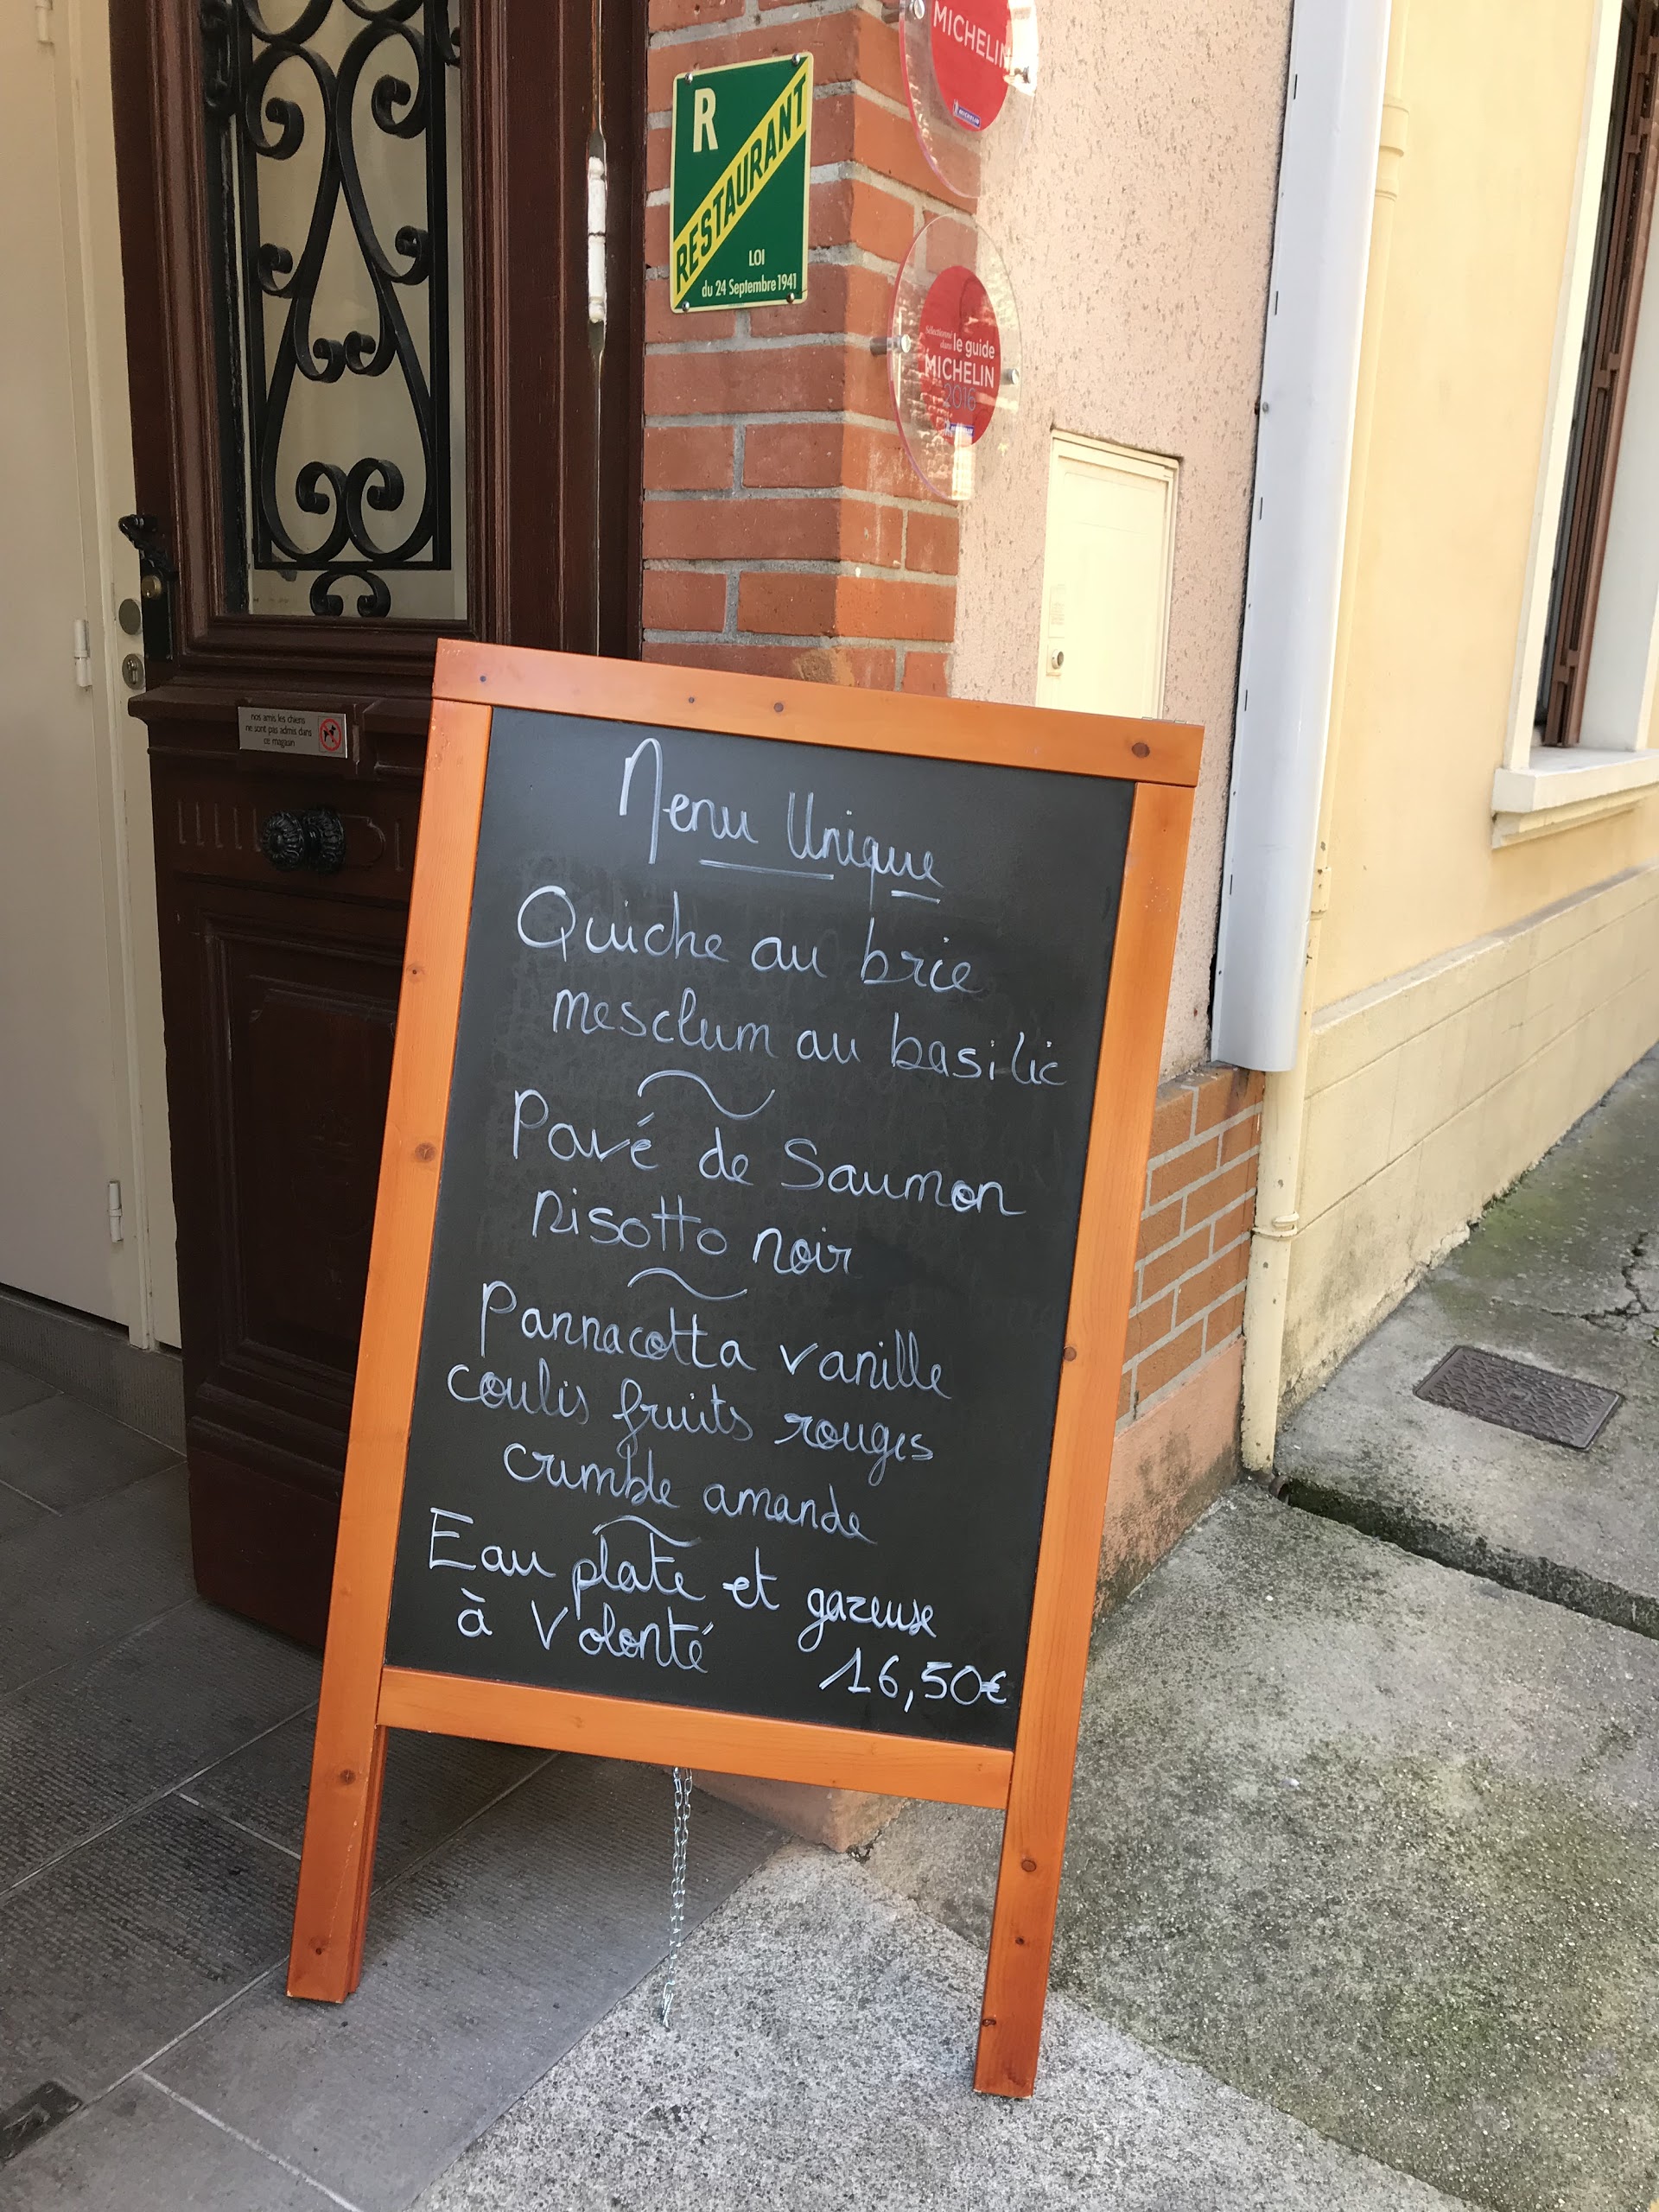 MICHELIN
R
RESTAURANT
LOI
du 24 Septembre 1941
Sélectionné
dans le guide
MICHELIN
2016
nos amis les chiens
ne sont pas admis dans
ce magasin
Menu Unique
Quiche au brie
mesclum au basilic
Pavé de Saumon
Risotto noir
Pannacotta vanille
coulis fruits rouges
crumble amande
Eau plate et gazeuse
à Volonté 16,50€